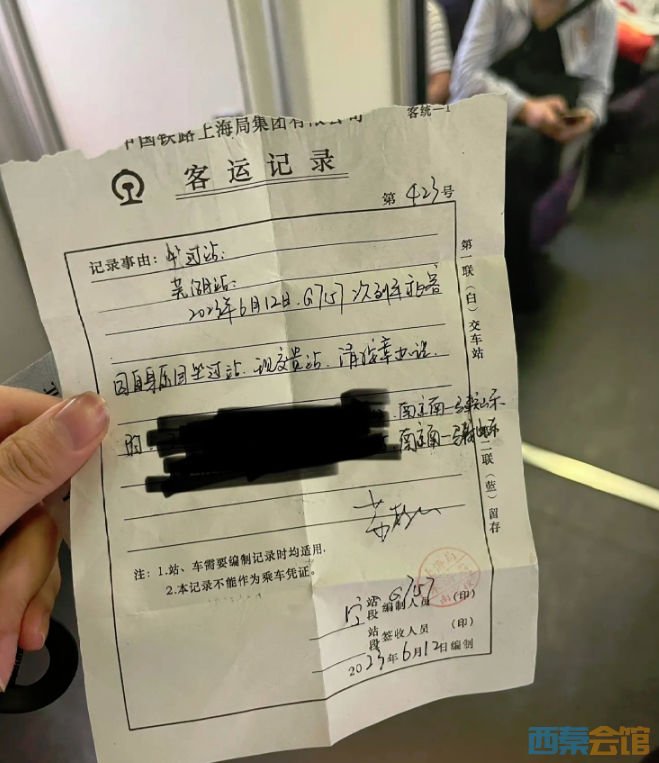 中国铁路上海局集团有限公司
客统—1
客运记录
第 423 号
记录事由：坐过站.
芜湖站：
2023年6月12日.G757次列车
因自身原因坐过站.现交贵站.请按章办理.
的.
南京南—马鞍山东
南京南—马鞍山东
注：1.站、车需要编制记录时均适用.
2.本记录不能作为乘车凭证。
G757
站段 编制人员 (印)
站段 签收人员 (印)
2023年6月12日编制
第一联（白）交车站
二联（蓝）留存
西秦会馆